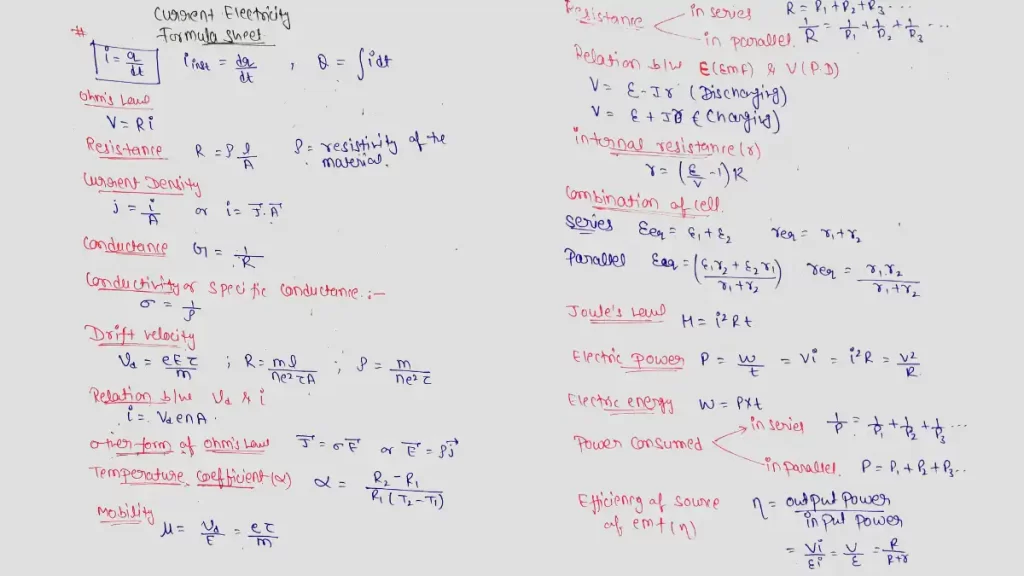 Current Electricity
# Formula sheet
i = q/dt i inst = dq/dt , Q = ∫idt
Ohm's Law
V = Ri
Resistance R = ρ l/A ρ = resistivity of the material.
Current Density
j = i/A or i = J⃗.A⃗
Conductance G = 1/R
Conductivity or specific conductance :-
σ = 1/ρ
Drift velocity
Vd = eEτ/m ; R = ml/ne²τA ; ρ = m/ne²τ
Relation b/w Vd & i
i = VdenA.
other form of ohm's Law J⃗ = σE⃗ or E⃗ = ρj⃗
Temperature coefficient (α) α = R2-R1/R1(T2-T1)
Mobility
μ = Vd/E = eτ/m
Resistance in series R = R1+R2+R3...
in parallel. 1/R = 1/R1+1/R2+1/R3 ...
Relation b/w E(Emf) & V(P.D)
V = ε-Ir (Discharging)
V = ε+Ir (Charging)
internal resistance (r)
r = (ε/V -1)R
Combination of cell.
series εeq = ε1+ε2 req = r1+r2
Parallel εeq = (ε1r2+ε2r1/r1+r2) req = r1r2/r1+r2
Joule's Law H = i²Rt
Electric power P = W/t = Vi = i²R = V²/R
Electric energy W = P×t
Power consumed in series 1/P = 1/P1+1/P2+1/P3...
in parallel. P = P1+P2+P3..
Efficiency of source of emf (η) η = output power/input power
= Vi/εi = V/ε = R/R+r